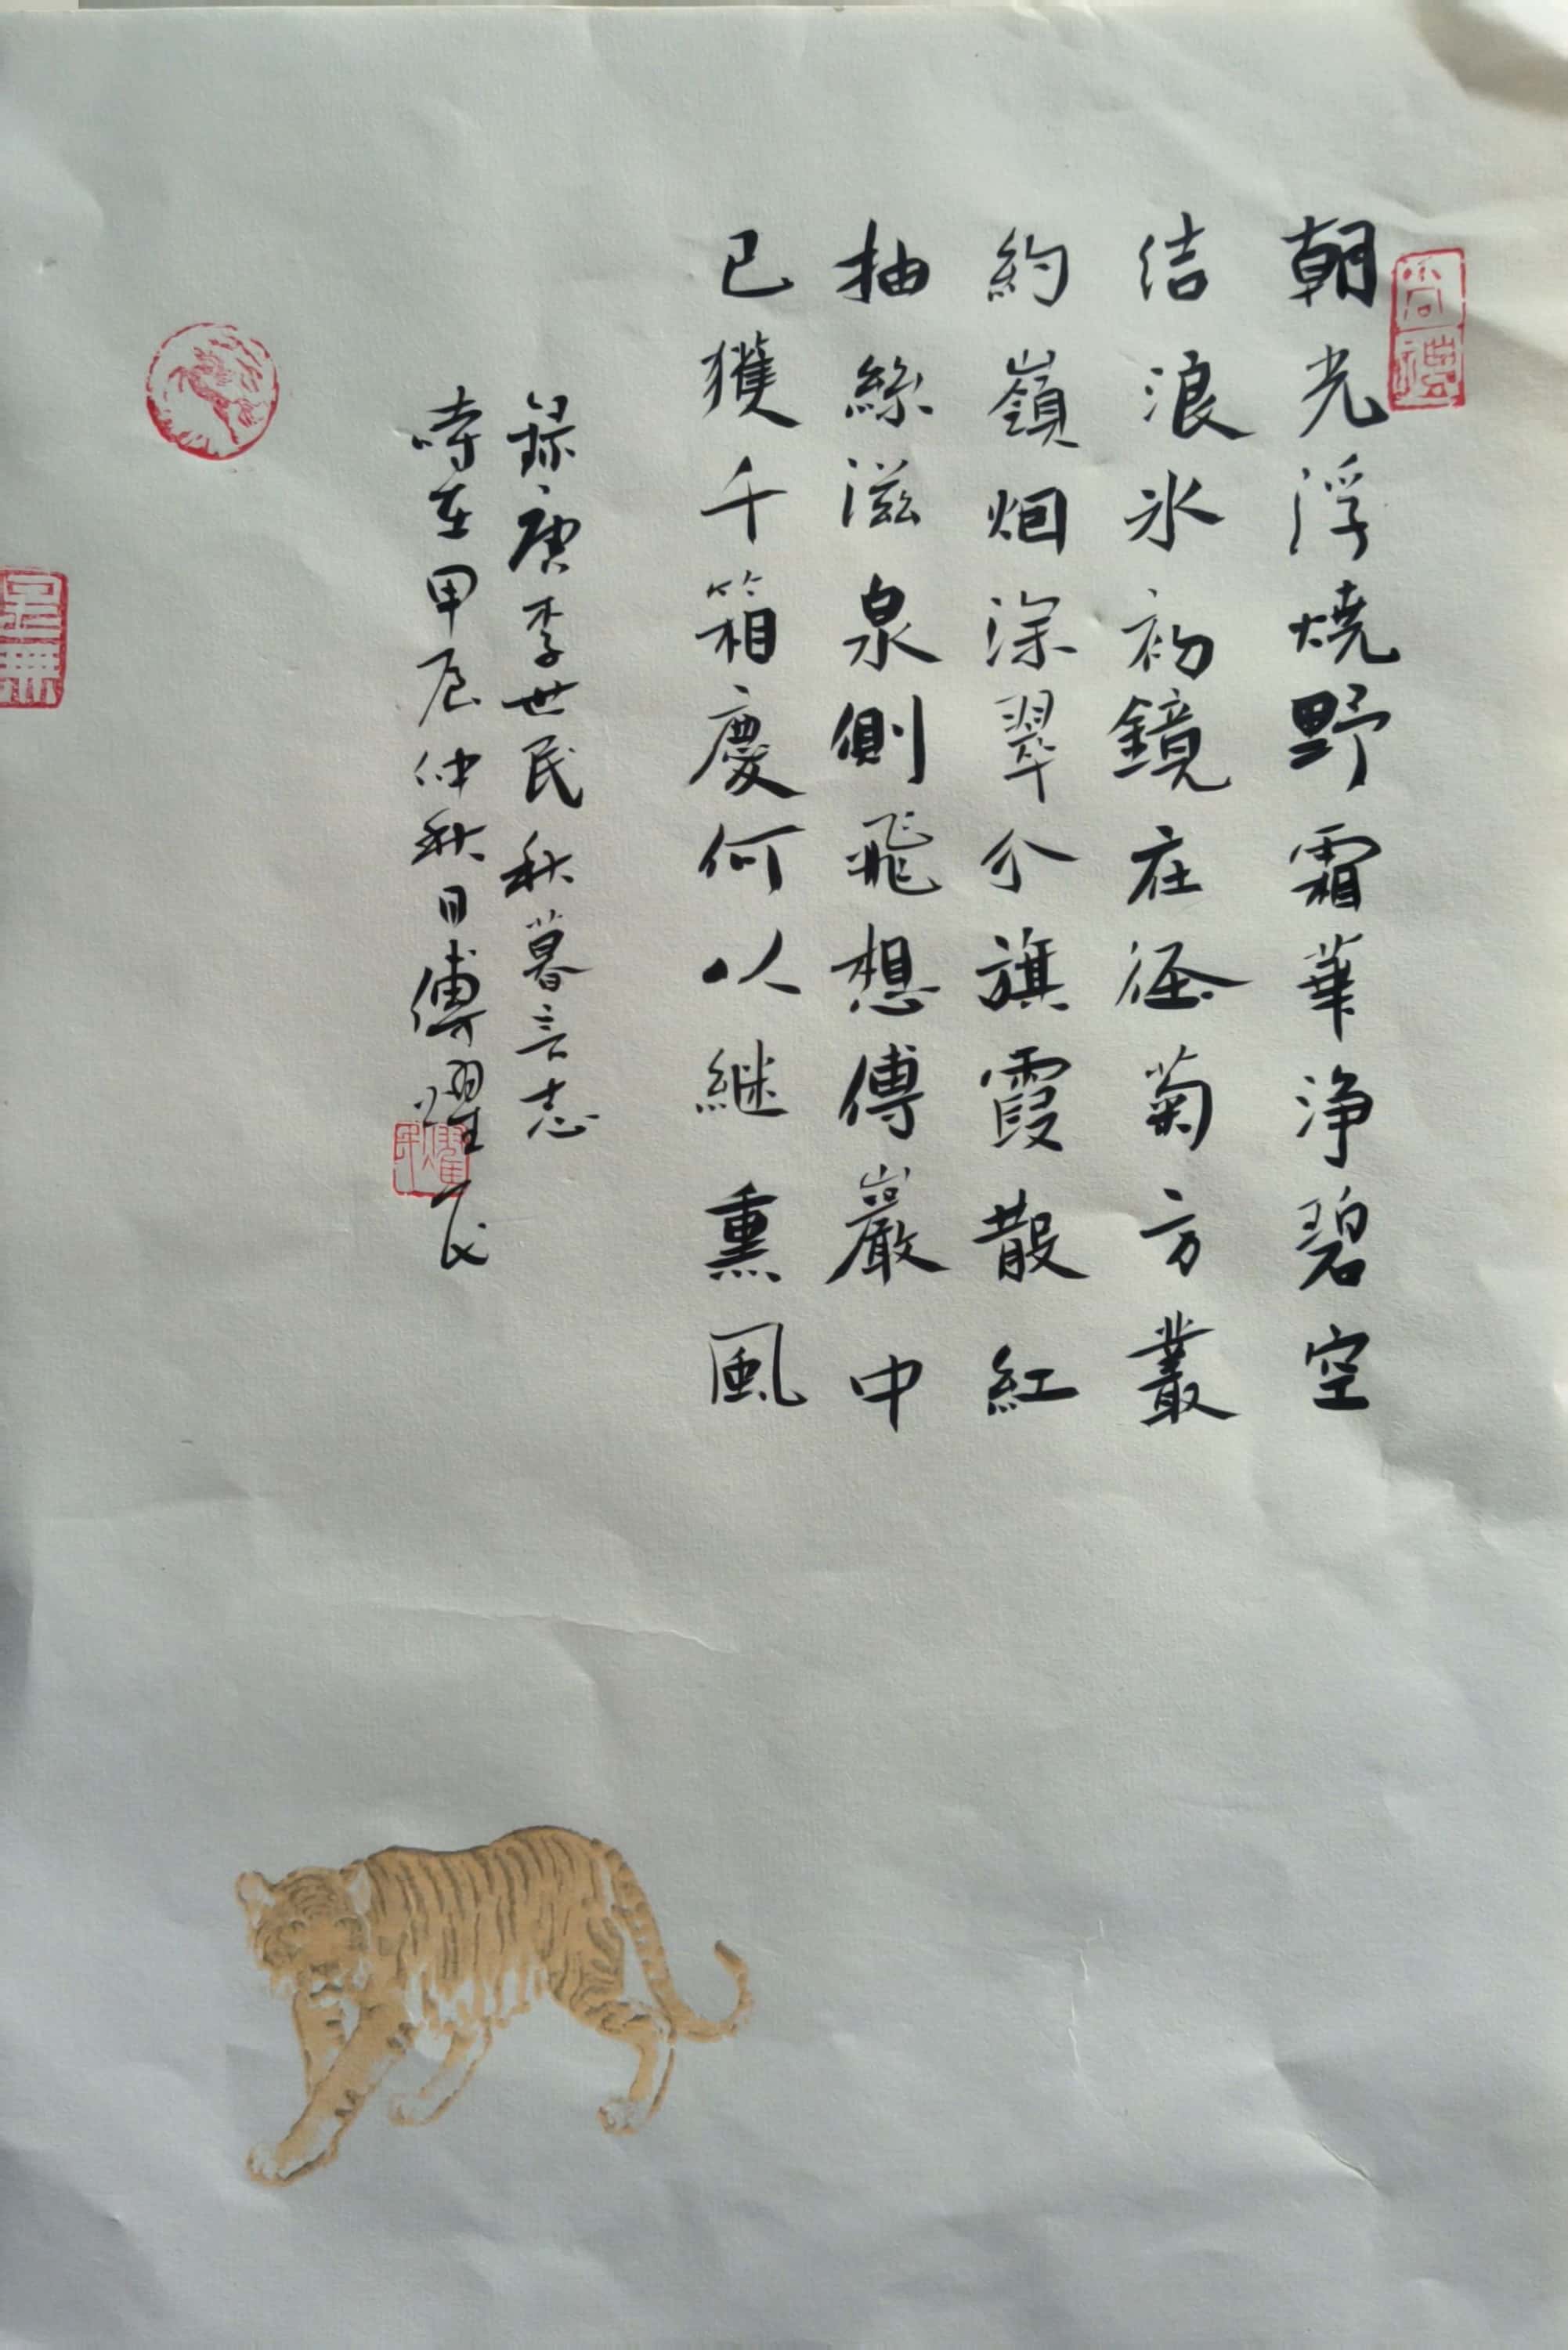 朝光浮燒野霜華淨碧空
结浪氷初鏡在徑菊方叢
約嶺烟深翠分旗霞散紅
抽絲滋泉側飛想傅巖中
已獲千箱慶何以継熏風
録唐李世民秋暮言志
時在甲辰仲秋日傅耀民
尚禮
耀民